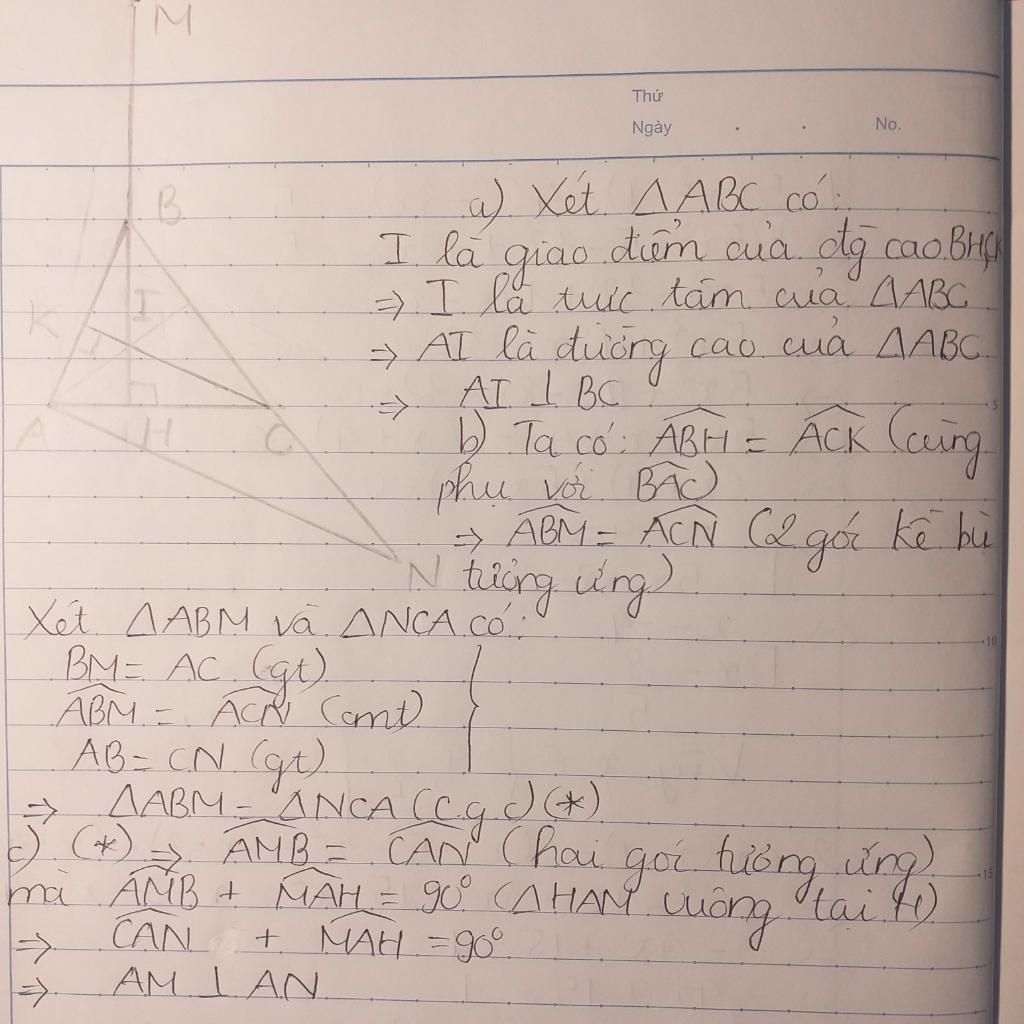 M
Thứ
Ngày . . No.
B
a) Xét △ABC có:
I là giao điểm của đg cao BH, CK
K I
=> I là trực tâm của △ABC
=> AI là đường cao của △ABC
5
=> AI ⊥ BC
A H C
b) Ta có: ABH = ACK (cùng
phụ với BAC)
=> ABM = ACN (2 gói kề bù
N
tương ứng)
Xét △ABM và △NCA có:
10
BM = AC (gt)
ABM = ACN (cmt)
AB = CN (gt)
=> △ABM = △NCA (c.g.c) (*)
c) (*) => AMB = CAN (hai gói tương ứng)
15
mà AMB + MAH = 90° (△HAM vuông tại H)
=> CAN + MAH = 90°
=> AM ⊥ AN